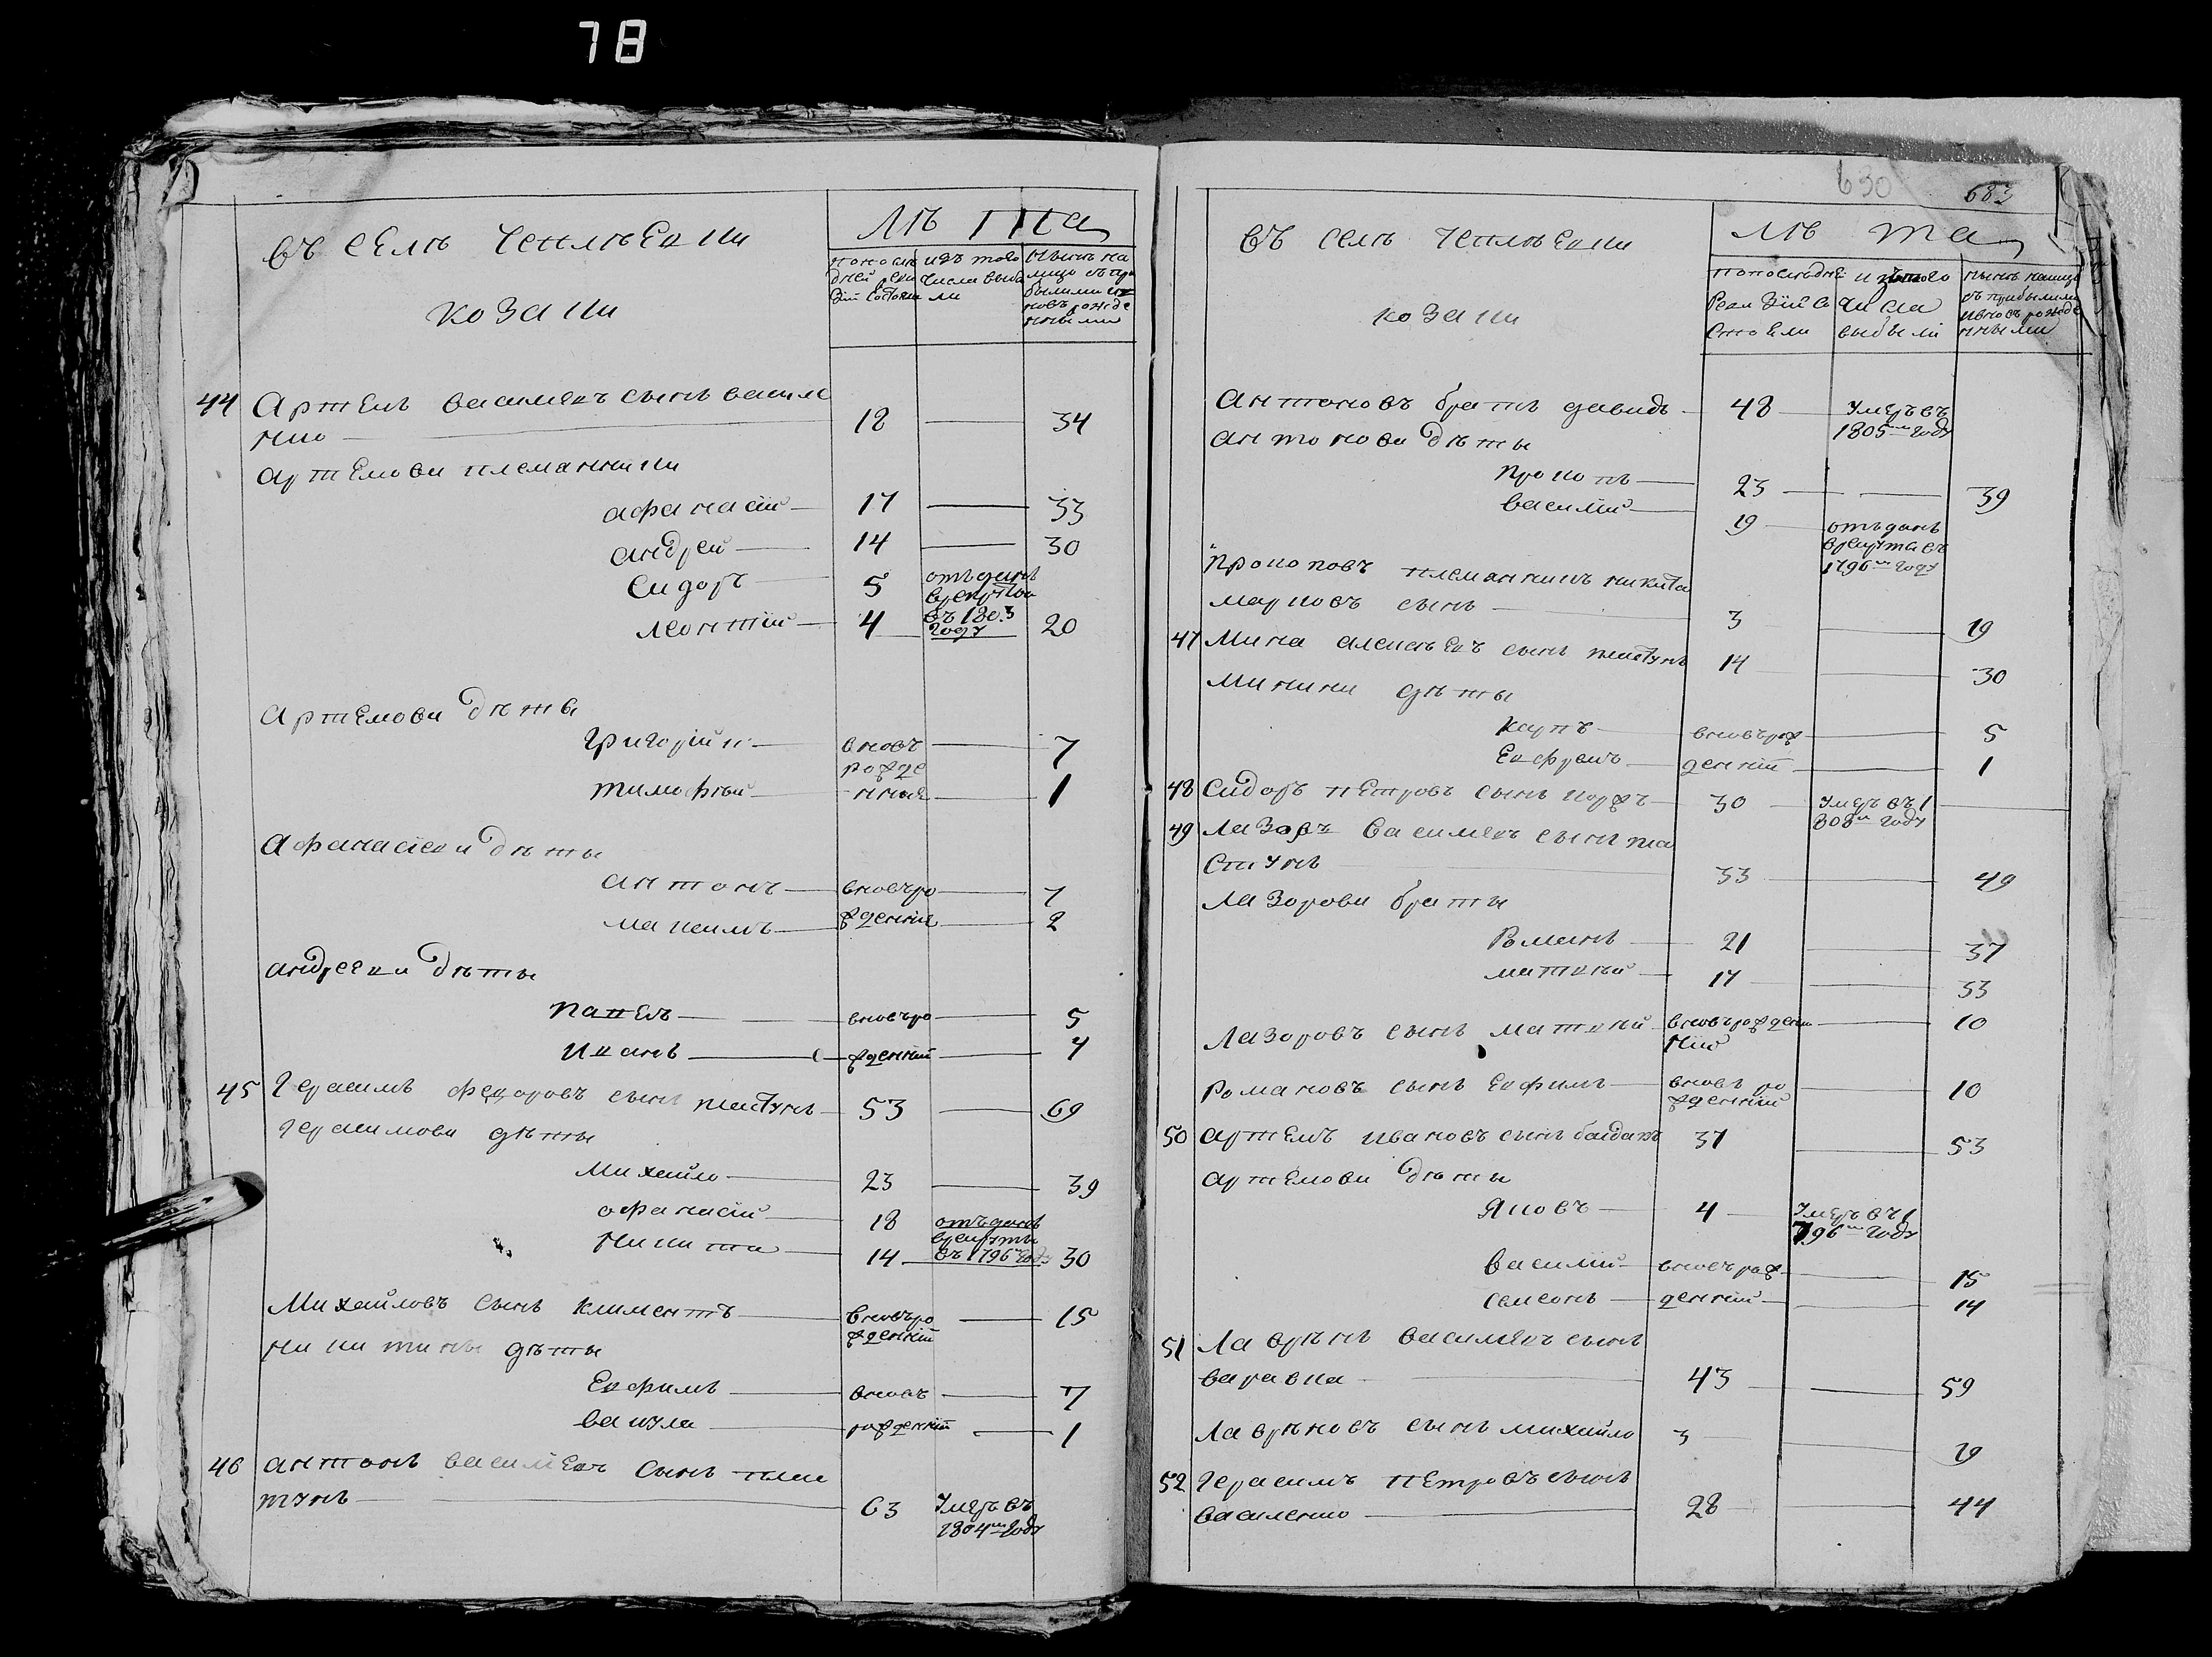 78
въ селѣ Чеплѣевки
козаки
Лѣта
по послѣ
дней реви
зіи состоял
изъ того
числа выбы
ли
нынѣ на
лицо съ при
былыми и
новъ рожде
нными
44 Артемъ василіевъ сынъ васile
нко 18 34
артемови племянники
афанасій 17 33
андрей 14 30
Сидоръ 5 отъданъ
врекруты
въ 1803
году
леонтій 4 20
Артемови дѣти
григорій 7
вновъ
рожде
тимофѣй нные 1
Афанасіеви дѣти
антонъ вновъро 7
максимъ жденніе 2
андрееви дѣти
павелъ вновъро 5
иванъ жденній 4
45 Герасимъ федоровъ сынъ пластунъ 53 69
герасимови дѣти
Михайло 23 39
афанасій 18 отъданъ
врекруты
въ 1796 году
никита 14 30
Михайловъ сынъ климентъ вновъро 15
жденній
никитины дѣти
Евфимъ вновъ 7
вакула рожденній 1
46 антонъ василіевъ сынъ плас
тунъ 63 Умеръ въ
1804м году
630 683
въ селѣ Чеплѣевки
козаки
Лѣта
по послѣдней
ревизіи со
стояли
изъ того
числа
выбыли
нынѣ налицо
съ прибылыми
и вновь рожде
нными
антоновъ братъ давидъ 48 Умеръ въ
1805м году
антонови дѣти
прокопъ 23 39
василій 19 отъданъ
врекруты въ
1796м году
прокоповъ племянникъ никита
марковъ сынъ 3 19
47 Мина алексѣевъ сынъ пластунъ 14 30
минини дѣти
карпъ вновърож 5
Евфремъ денній 1
48 Сидоръ петровъ сынъ коржъ 30 Умеръ въ 1
808м году
49 Лазоръ василіевъ сынъ пла
стунъ 33 49
Лазорови браты
Романъ 21 37
матвѣй 17 33
Лазоровъ сынъ матвѣй вновърожден 10
ній
Романовъ сынъ Евфимъ вновъ ро 10
жденній
50 артемъ ивановъ сынъ байдакъ 37 53
артемови дѣти
Яковъ 4 Умеръ въ 1
796м году
василій вновърож 15
самсонъ денній 14
51 Лаврѣнъ василіевъ сынъ
варавка 43 59
Лаврѣновъ сынъ михайло 3 19
52 Герасимъ петровъ сынъ
василенко 28 44